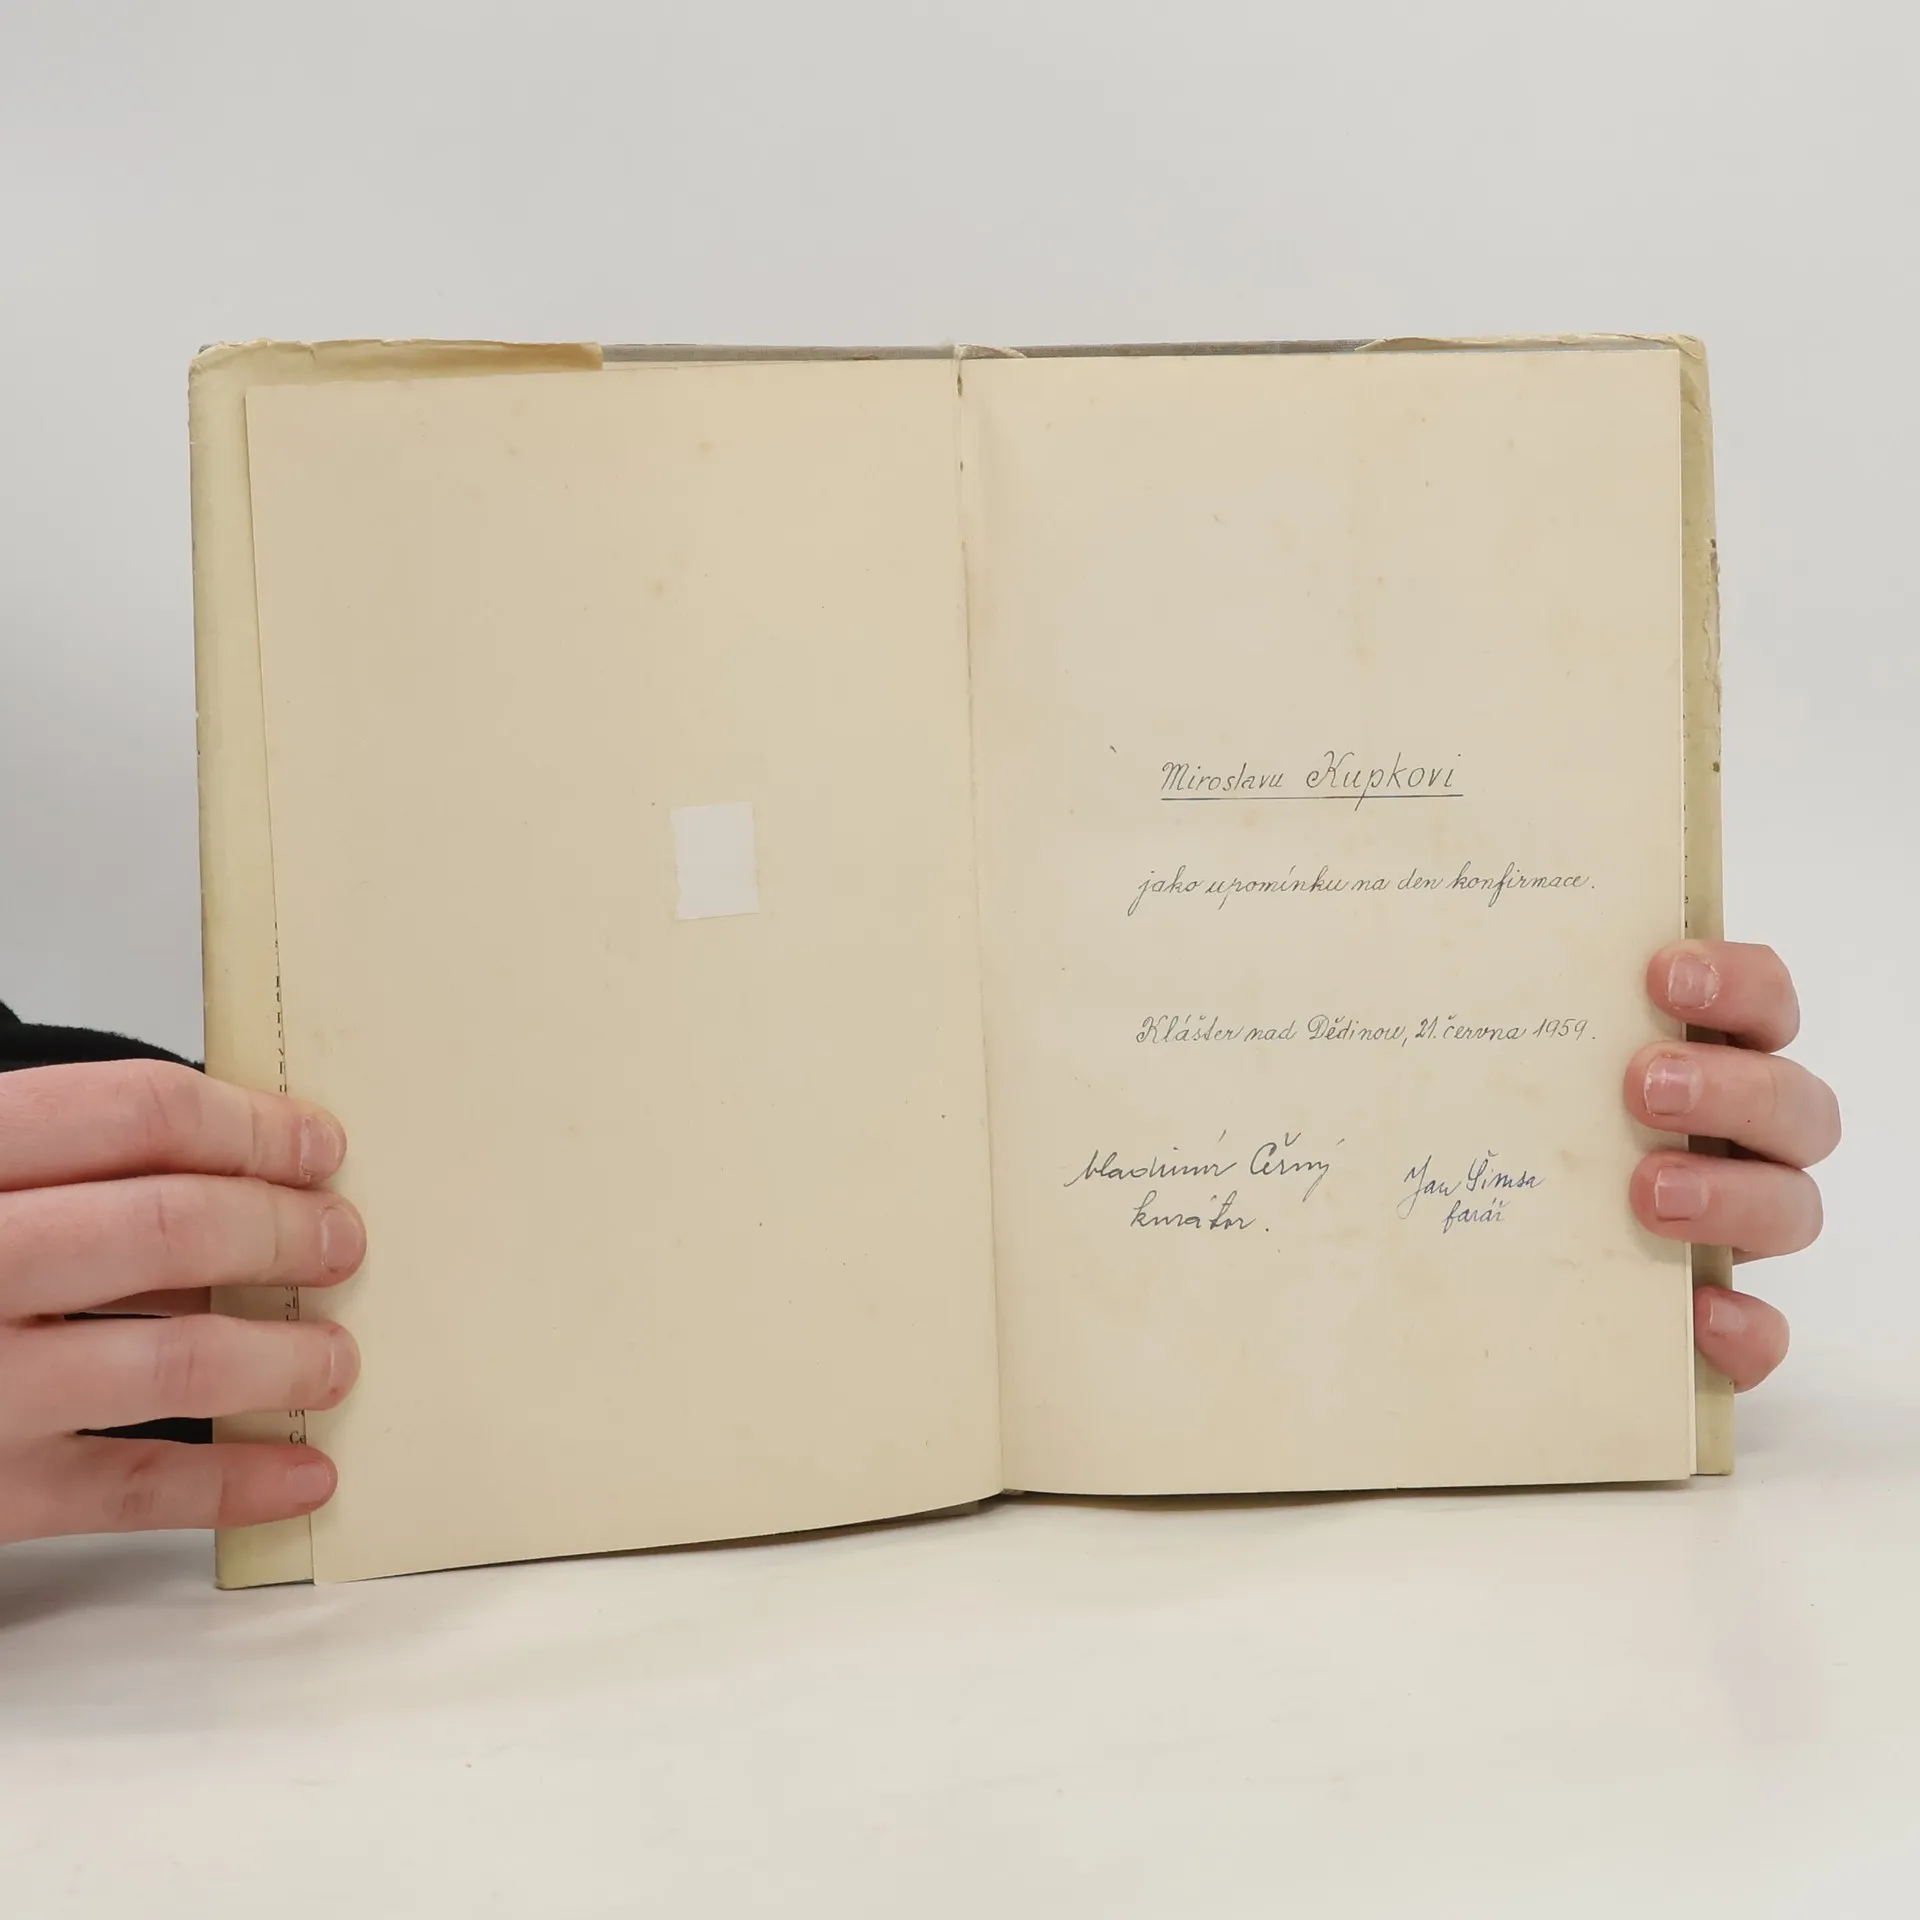 Miroslavu Kupkovi
jako upomínku na den konfirmace.
Klášter nad Dědinou, 21. června 1959.
Vladimír Černý
kurátor.
Jan Šimsa
farář